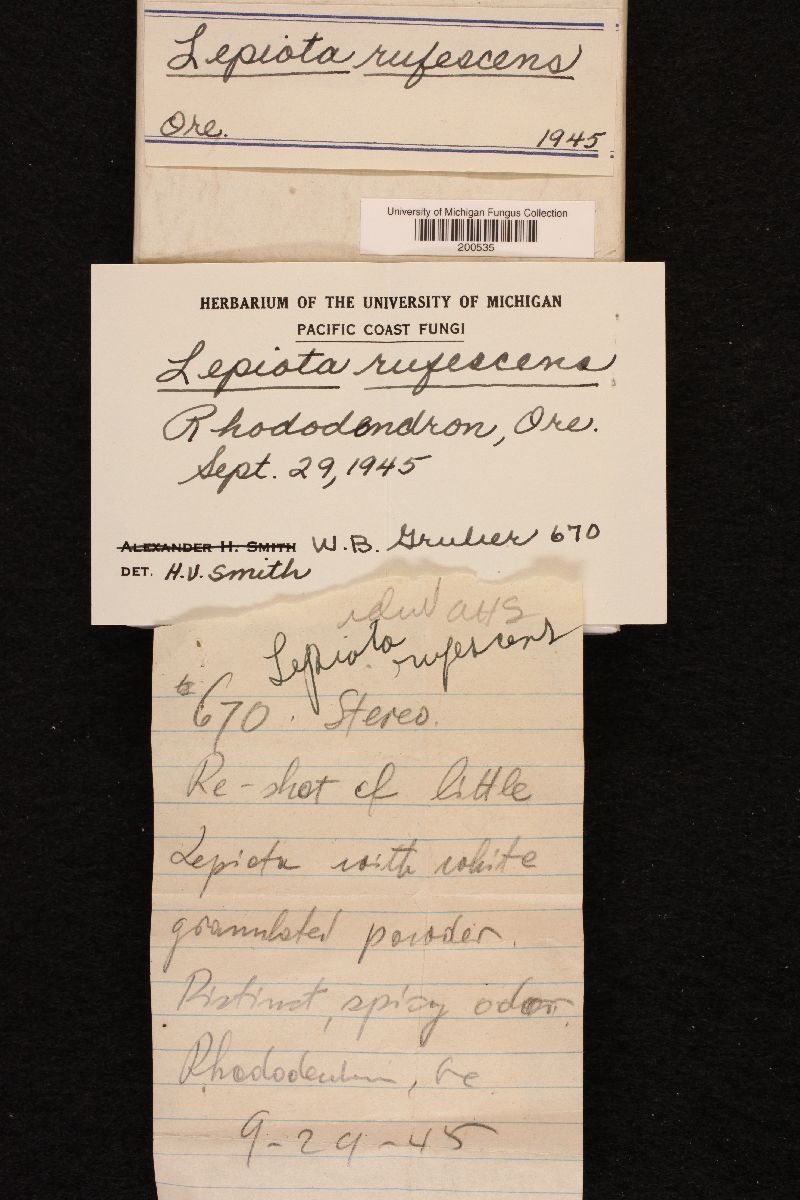 Lepiota rufescens
Ore. 1945
University of Michigan Fungus Collection
200535
HERBARIUM OF THE UNIVERSITY OF MICHIGAN
PACIFIC COAST FUNGI
Lepiota rufescens
Rhododendron, Ore.
Sept. 29, 1945
ALEXANDER H. SMITH W.B. Gruber 670
DET. H.V. Smith
Lepiota rufescens
670. Stereo.
Re-shot of little
Lepiota with white
granulated powder.
Distinct, spicy odor.
Rhododendron, Ore
9-29-45